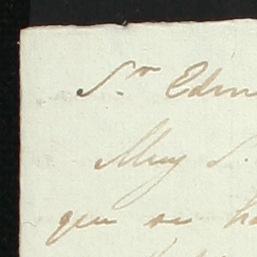 Sr. Edm
Muy S.
que se ha